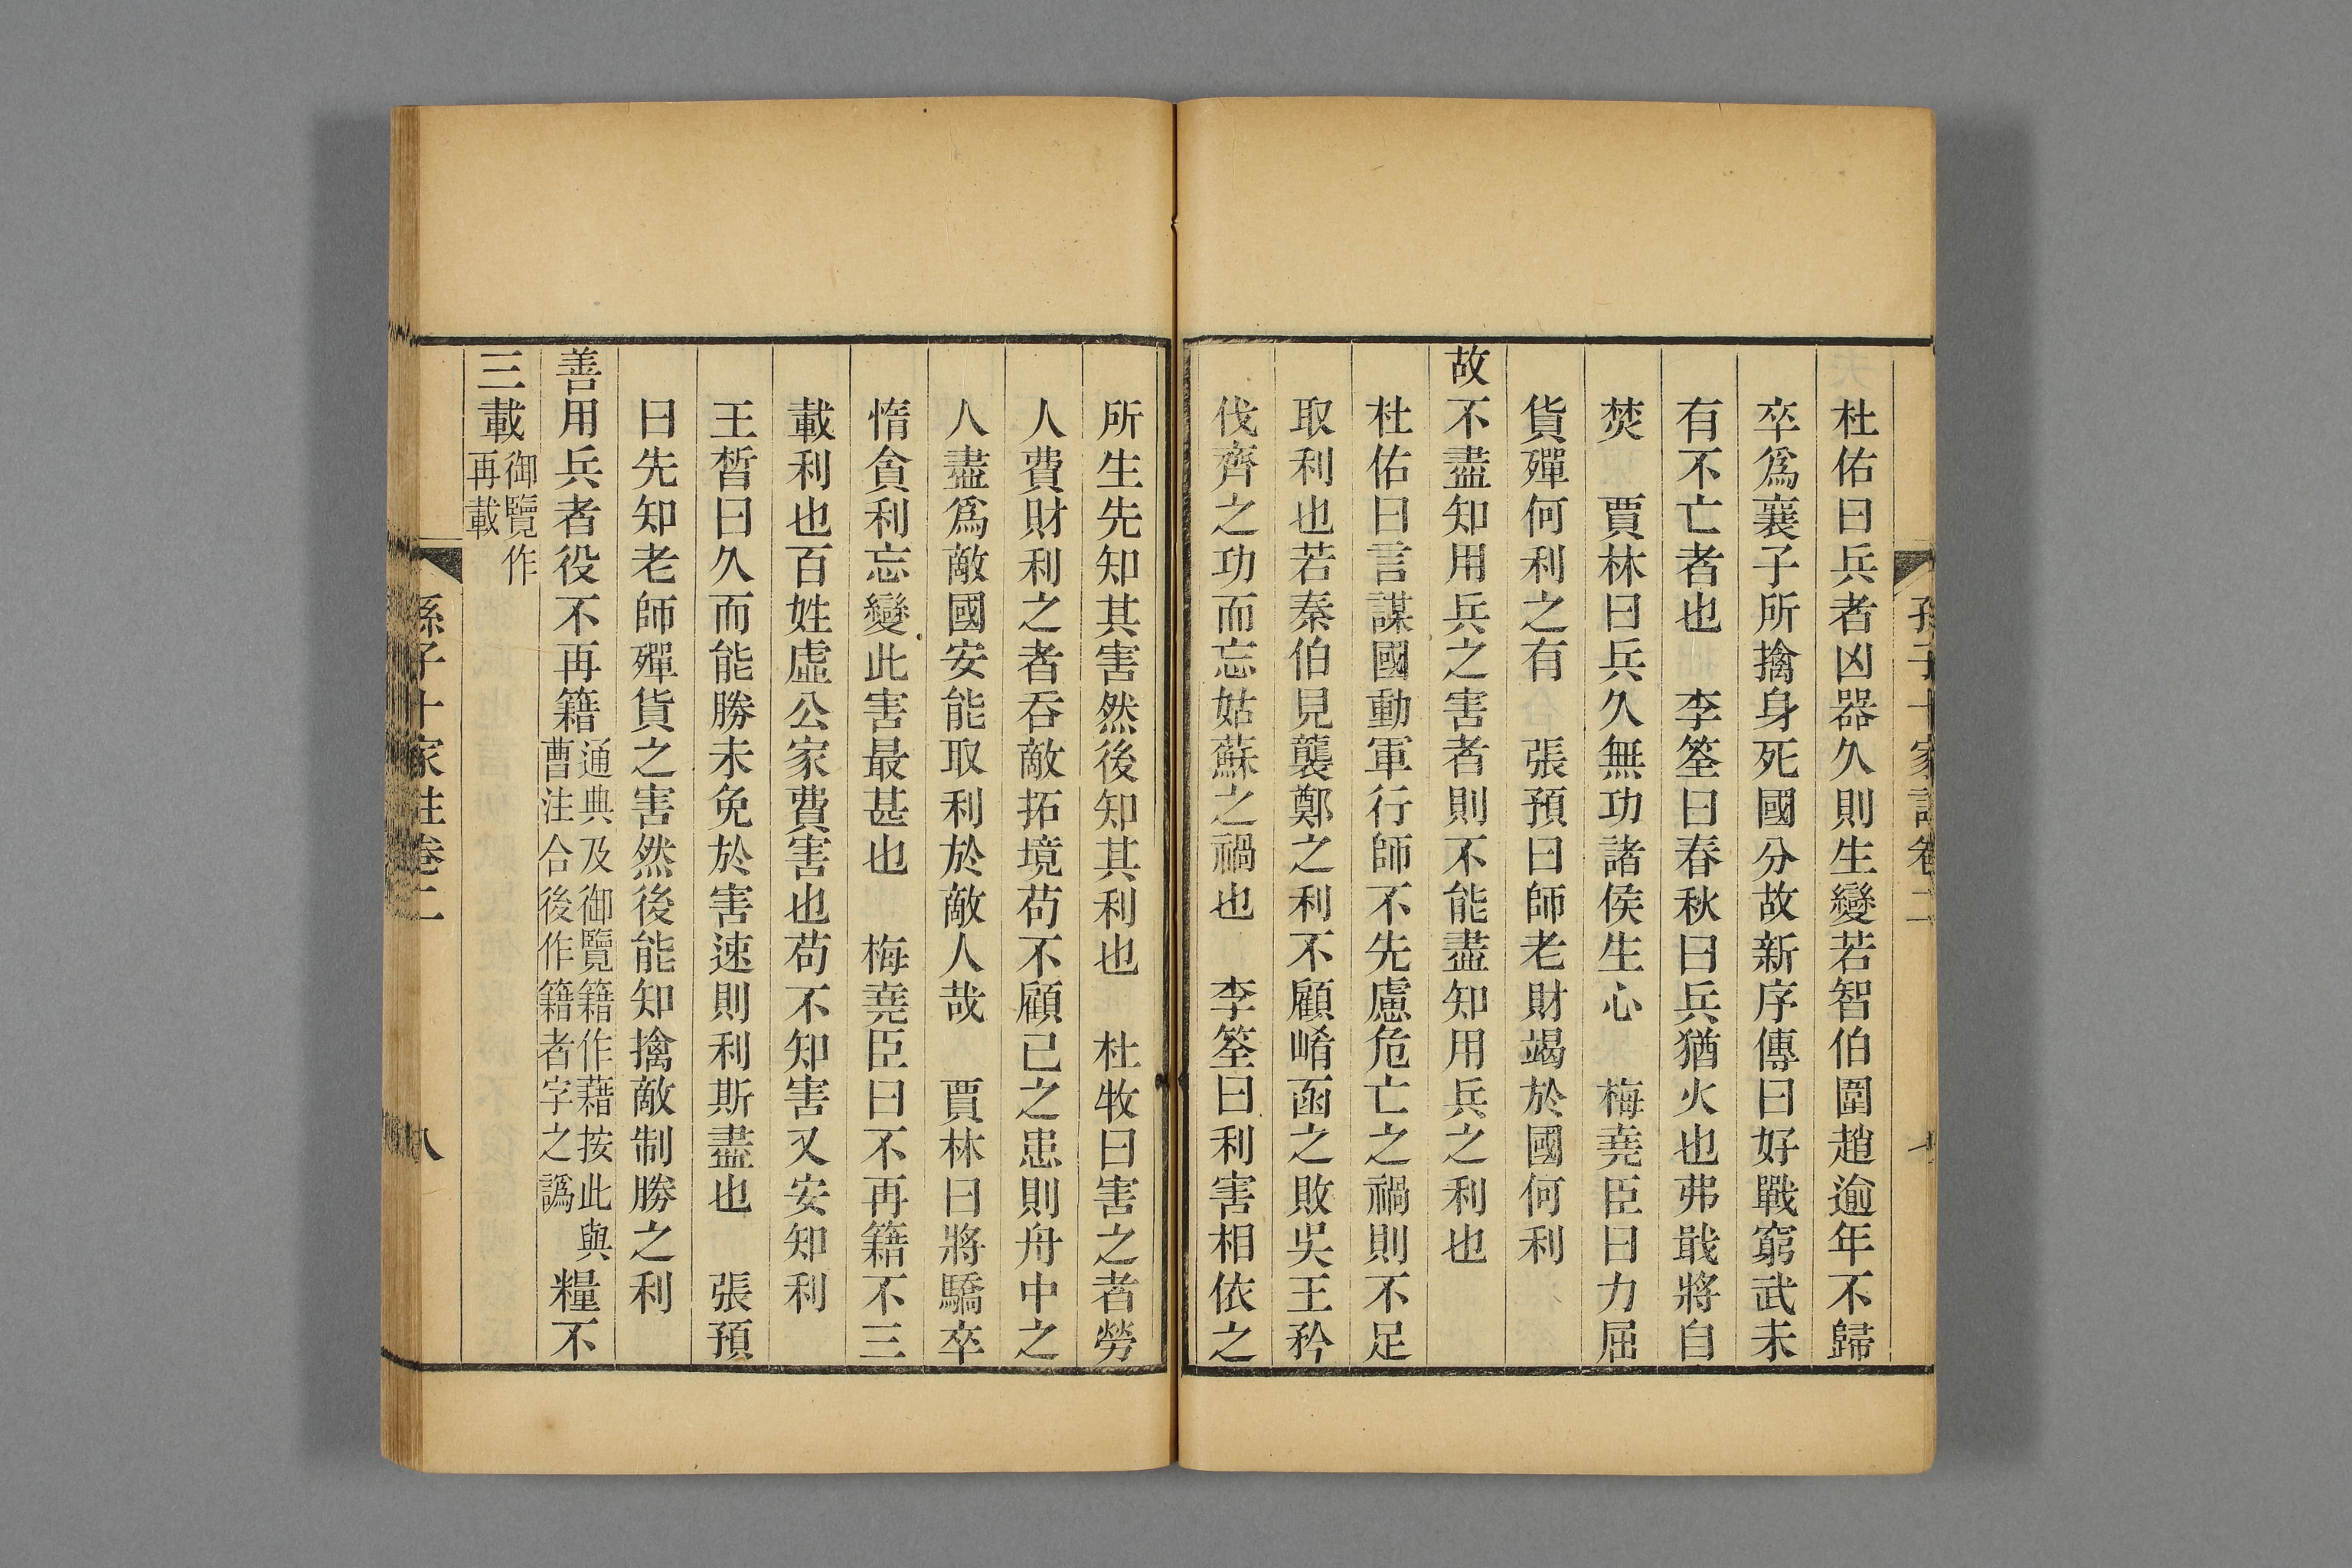 孫子十家註卷二
杜佑曰兵者凶器久則生變若智伯圍趙逾年不歸
卒爲襄子所擒身死國分故新序傳曰好戰窮武未
有不亡者也　李筌曰春秋曰兵猶火也弗戢將自
焚　賈林曰兵久無功諸侯生心　梅堯臣曰力屈
貨殫何利之有　張預曰師老財竭於國何利
故不盡知用兵之害者則不能盡知用兵之利也
杜佑曰言謀國動軍行師不先慮危亡之禍則不足
取利也若秦伯見襲鄭之利不顧崤函之敗吳王矜
伐齊之功而忘姑蘇之禍也　李筌曰利害相依之
所生先知其害然後知其利也　杜牧曰害之者勞
人費財利之者吞敵拓境苟不顧己之患則舟中之
人盡爲敵國安能取利於敵人哉　賈林曰將驕卒
惰貪利忘變此害最甚也　梅堯臣曰不再籍不三
載利也百姓虛公家費害也苟不知害又安知利
王晳曰久而能勝未免於害速則利斯盡也　張預
曰先知老師殫貨之害然後能知擒敵制勝之利
善用兵者役不再籍通典及御覽籍作藉按此與曹注合後作籍者字之譌糧不
三載御覽作再載
孫子十家註卷二　八